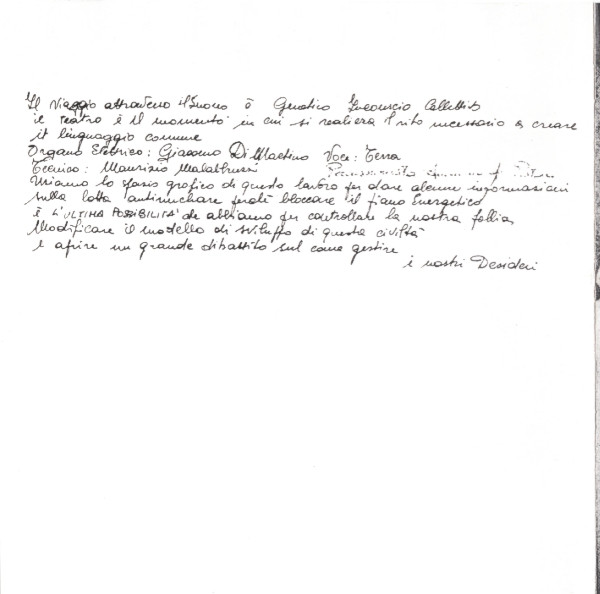 Il viaggio attraverso il Suono è Genetico Inconscio Collettivo
il teatro è il momento in cui si realizza il rito necessario a creare
il linguaggio comune
Organo Elettrico: Giacomo Di Martino Voce: Terra
Tecnico: Maurizio
Usiamo lo spazio grafico di questo lavoro per dare alcune informazioni
sulla lotta antinucleare perché bloccare il piano Energetico
è L'ULTIMA POSSIBILITÀ che abbiamo per controllare la nostra follia
Modificare il modello di sviluppo di questa civiltà
e aprire un grande dibattito sul come gestire
i nostri Desideri